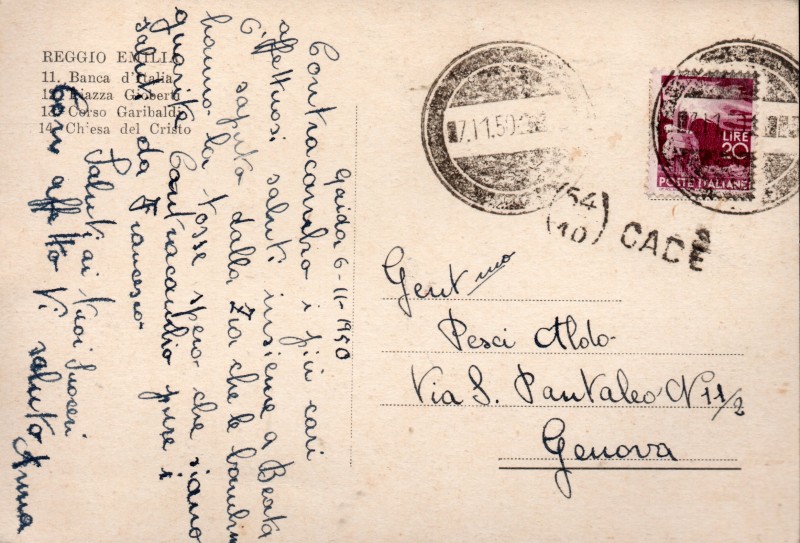 REGGIO EMILIA
11. Banca d'Italia
12. Piazza Gioberti
13. Corso Garibaldi
14. Chiesa del Cristo
Gaida 6-11-1950
Contracambio i più cari
affettuosi saluti insieme a Beata
saputo dalla Zia che le bambine
hanno la tosse spero che siano
guarite Contracambio pure i
saluti da Francesco
Saluti ai tuoi Suoceri
Con affetto Vi saluto Anna
7.11.50
LIRE
20
POSTE ITALIANE
(54)
(10) CADÈ
Gent.mo
Pesci Aldo
Via S. Pantaleo N 11/2
Genova